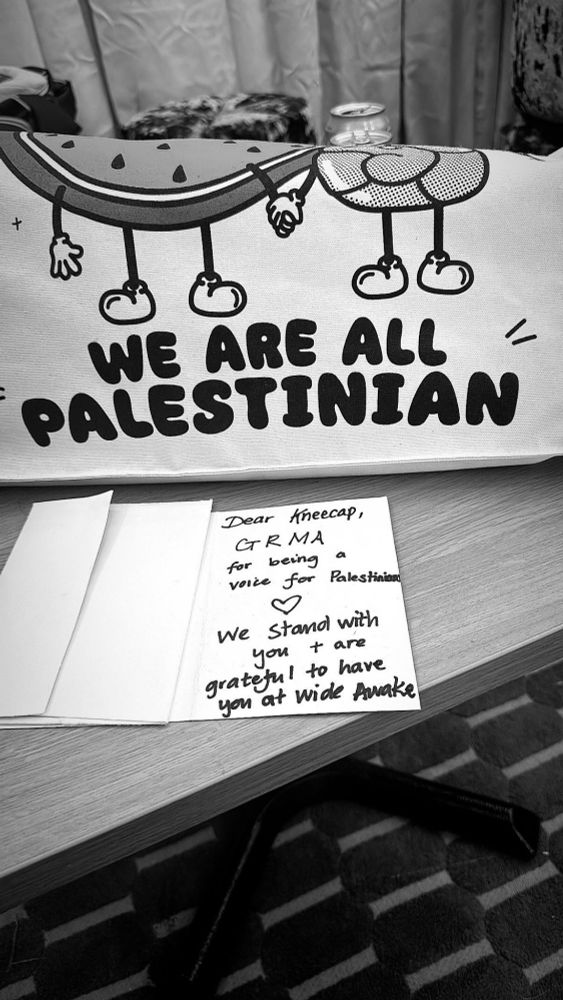 WE ARE ALL
PALESTINIAN
Dear Kneecap,
GRMA
for being a
voice for Palestinians
♡
We Stand with
you + are
grateful to have
you at Wide Awake